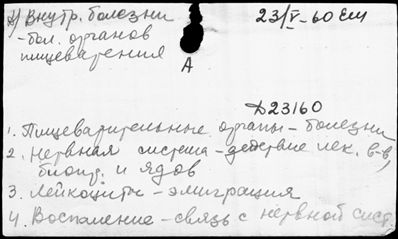 д) Внутр. болезни 23/V-60 Ем
-бол. органов
пищеварения
А
Д23160
1. Пищеварительные органы - болезни
2. Нервная система - действие лек. в-в,
биопр. и ядов
3. Лейкоциты - эмиграция
4. Воспаление - связь с нервной сист.